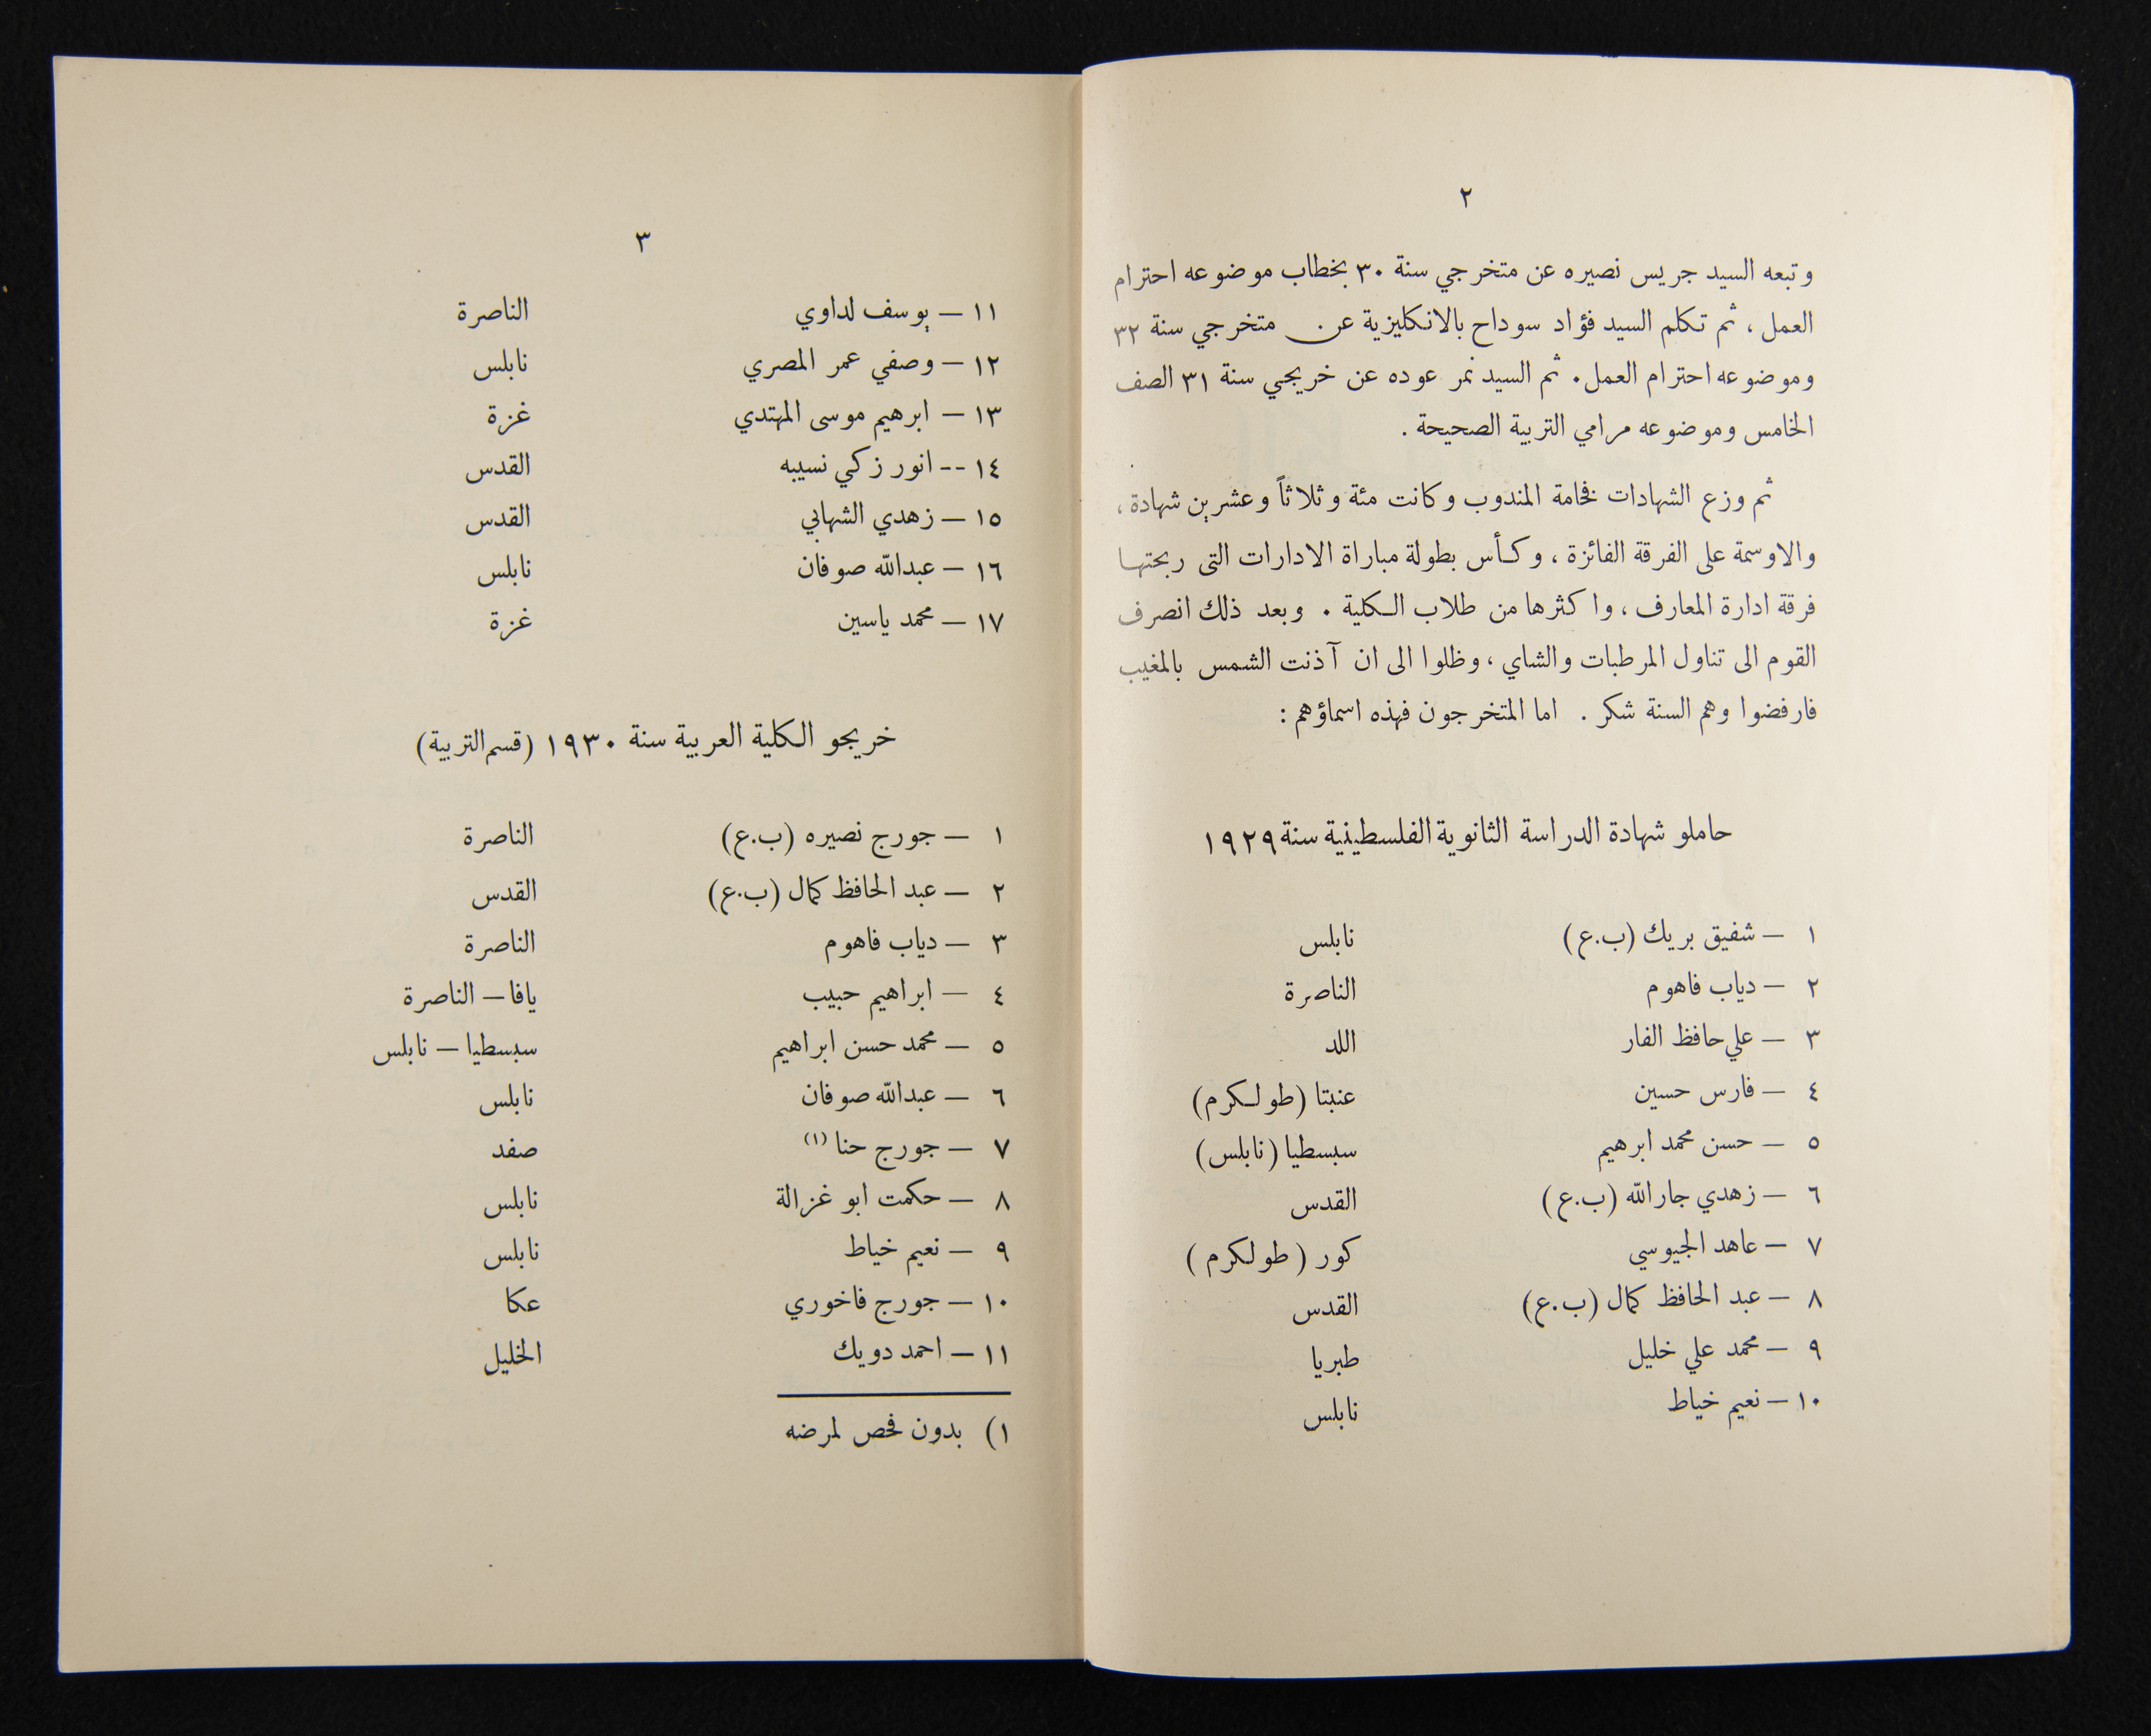 ٢
وتبعه السيد جريس نصيره عن متخرجي سنة ٣٠ بخطاب موضوعه احترام
العمل ، ثم تكلم السيد فؤاد سوداح بالانكليزية عن متخرجي سنة ٣٢
وموضوعه احترام العمل . ثم السيد نمر عوده عن خريجي سنة ٣١ الصف
الخامس وموضوعه مرامي التربية الصحيحة .
ثم وزع الشهادات فخامة المندوب وكانت مئة وثلاثاً وعشرين شهادة ،
والاوسمة على الفرقة الفائزة ، وكأس بطولة مباراة الادارات التى ربحتها
فرقة ادارة المعارف ، واكثرها من طلاب الكلية . وبعد ذلك انصرف
القوم الى تناول المرطبات والشاي ، وظلوا الى ان آذنت الشمس بالمغيب
فارفضوا وهم السنة شكر . اما المتخرجون فهذه اسماؤهم :
حاملو شهادة الدراسة الثانوية الفلسطينية سنة ١٩٢٩
١ — شفيق بريك (ب.ع) نابلس
٢ — دياب فاهوم الناصرة
٣ — علي حافظ الفار اللد
٤ — فارس حسين عنبتا (طولكرم)
٥ — حسن محمد ابرهيم سبسطيا (نابلس)
٦ — زهدي جارالله (ب.ع) القدس
٧ — عاهد الجيوسي كور (طولكرم)
٨ — عبد الحافظ كمال (ب.ع) القدس
٩ — محمد علي خليل طبريا
١٠ — نعيم خياط نابلس
٣
١١ — يوسف لداوي الناصرة
١٢ — وصفي عمر المصري نابلس
١٣ — ابرهيم موسى المهتدي غزة
١٤ -- انور زكي نسيبه القدس
١٥ — زهدي الشهابي القدس
١٦ — عبدالله صوفان نابلس
١٧ — محمد ياسين غزة
خريجو الكلية العربية سنة ١٩٣٠ (قسم التربية)
١ — جورج نصيره (ب.ع) الناصرة
٢ — عبد الحافظ كمال (ب.ع) القدس
٣ — دياب فاهوم الناصرة
٤ — ابراهيم حبيب يافا — الناصرة
٥ — محمد حسن ابراهيم سبسطيا — نابلس
٦ — عبدالله صوفان نابلس
٧ — جورج حنا (١) صفد
٨ — حكمت ابو غزالة نابلس
٩ — نعيم خياط نابلس
١٠ — جورج فاخوري عكا
١١ — احمد دويك الخليل
١) بدون فحص لمرضه